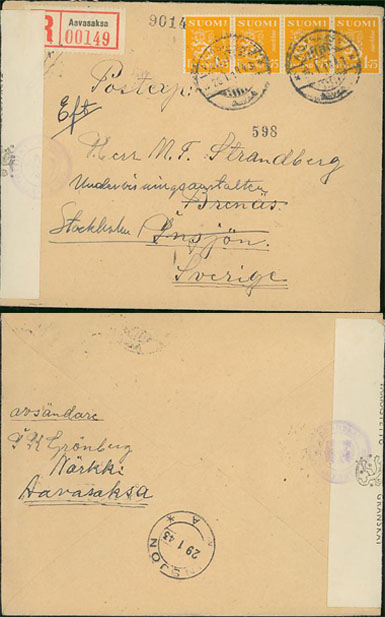 R Aavasaksa
00149
9014
SUOMI SUOMI SUOMI SUOMI
1.75
Postexp:
Eft
598
Herr M. F. Strandberg
Undervisningsanstalten
Brenäs.
Stockholm Insjön.
Sverige
avsändare
Grönberg
Närkki
Aavasaksa
INSJÖN
29 1 43
A
GRANSKAT